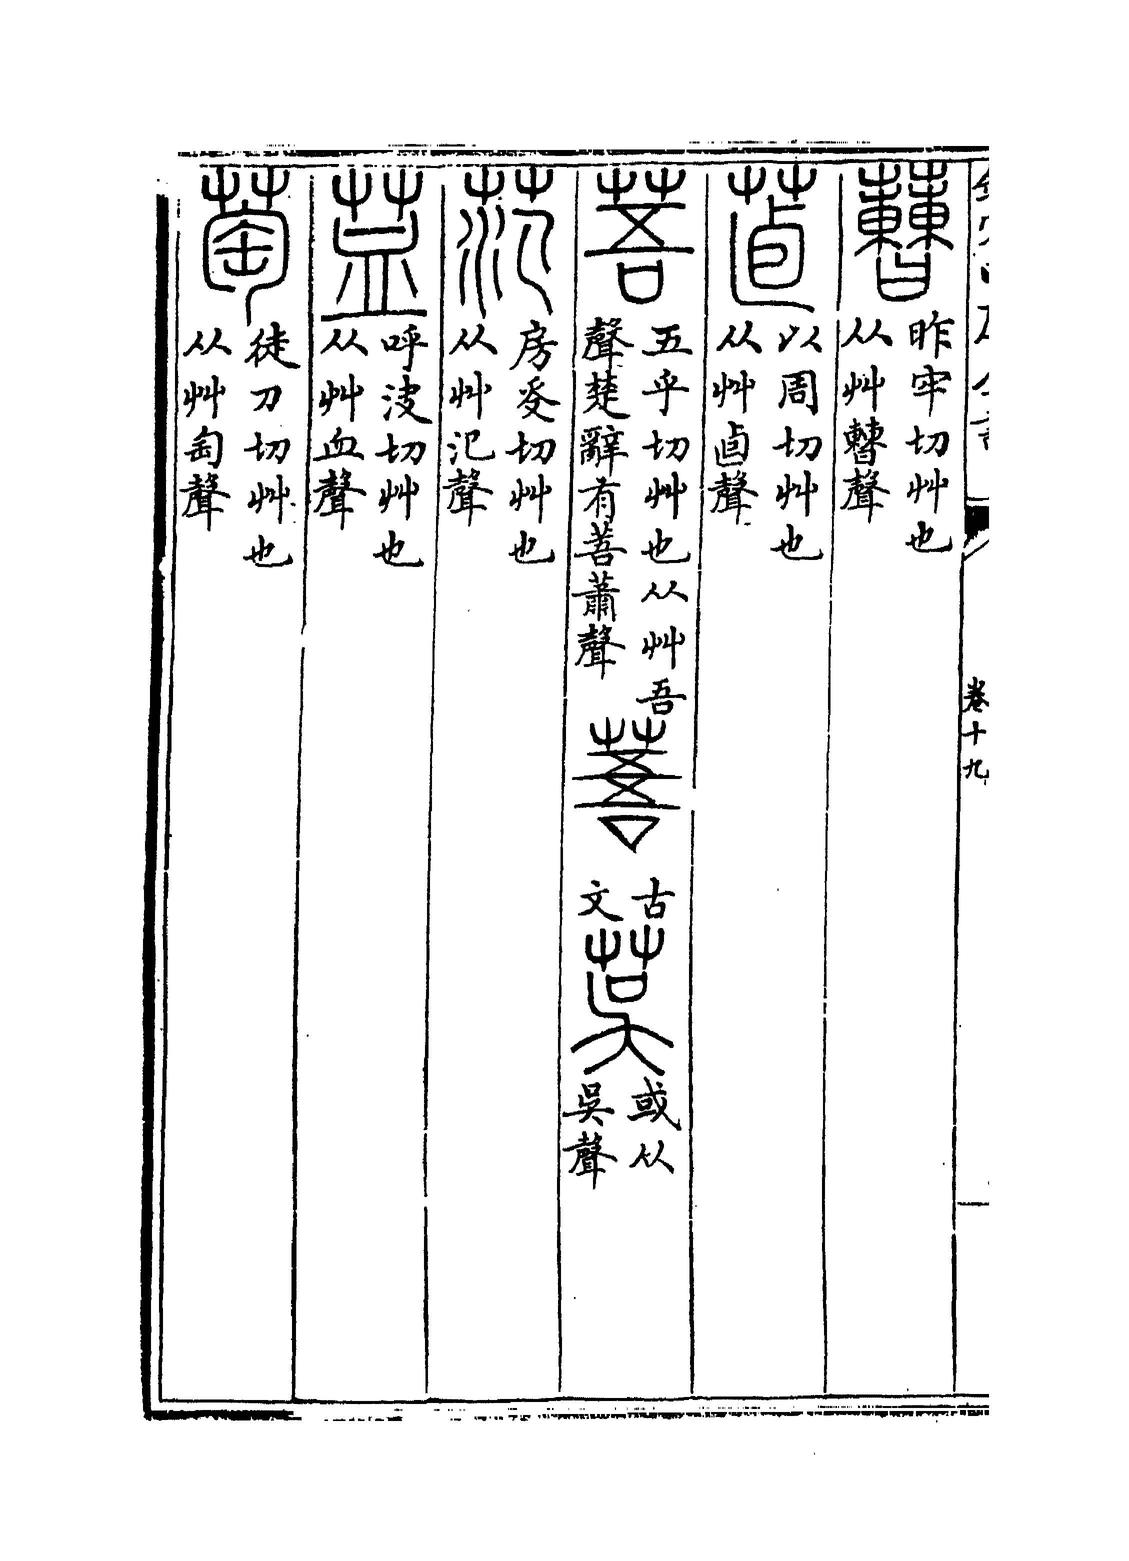 欽定四庫全書
卷十九
蓸 昨牢切艸也
从艸𣍘聲
以周切艸也
从艸卣聲
䓊 五乎切艸也从艸吾
聲楚辭有䓊蕭聲
古
文
或从
吳聲
范 房切艸也
从艸氾聲
呼波切艸也
从艸血聲
萄 徒刀切艸也
从艸匋聲